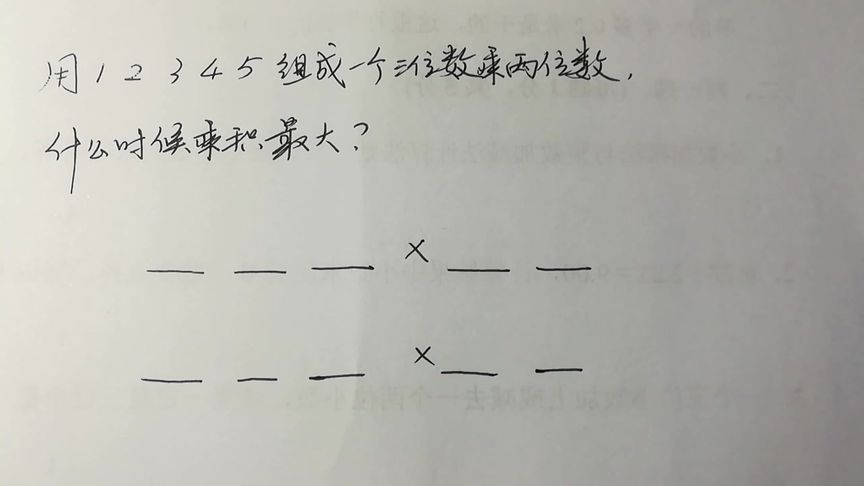 用 1 2 3 4 5 组成一个三位数乘两位数,
什么时候乘积最大?
_ _ _ × _ _
_ _ _ × _ _